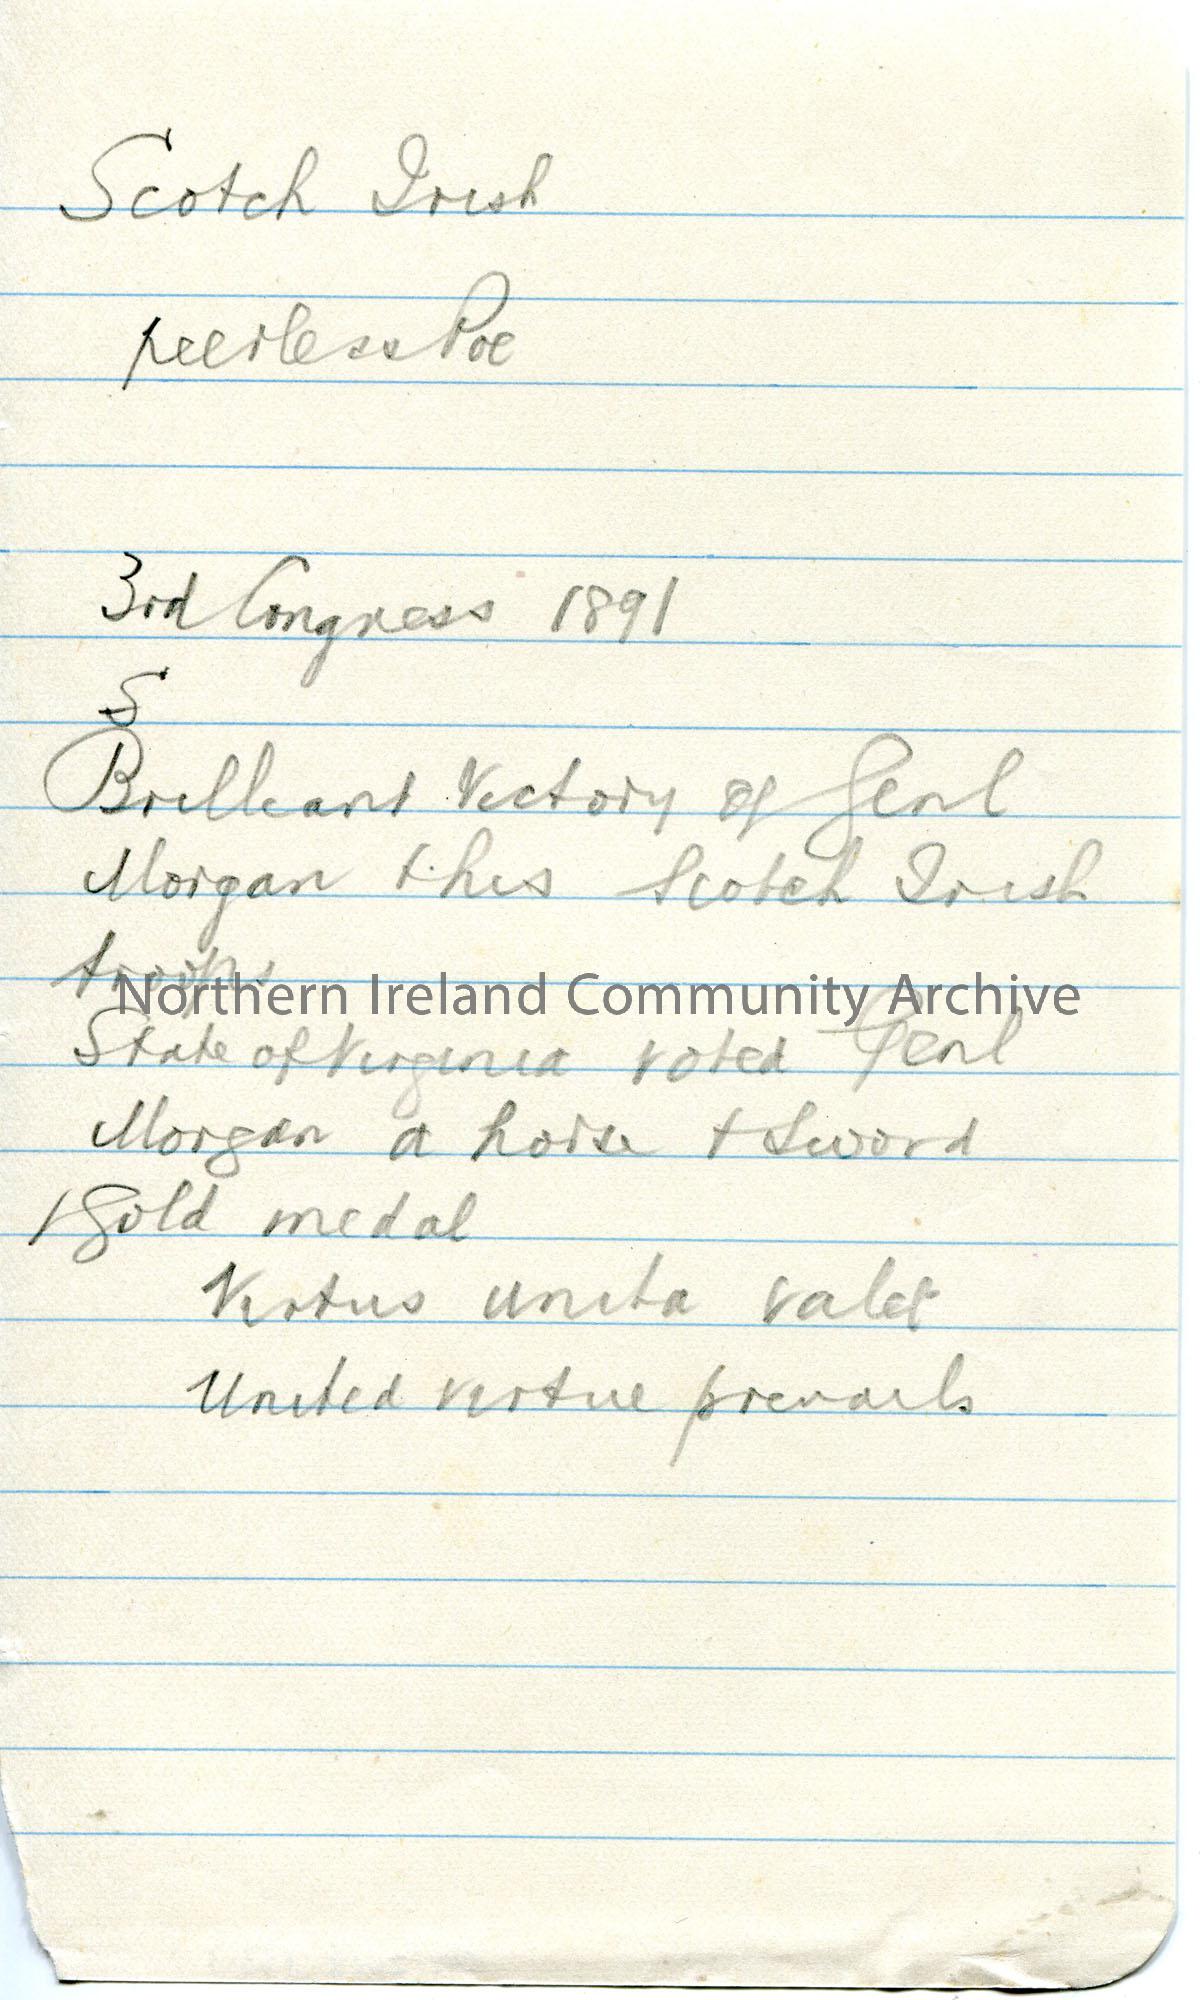 Scotch Irish
peerless Poe
3rd Congress 1891
S
Brilliant Victory of Genl
Morgan & his Scotch Irish
troops
Northern Ireland Community Archive
State of Virginia voted Genl
Morgan a horse + sword
+ Gold medal
Virtus unita valet
United virtue prevails